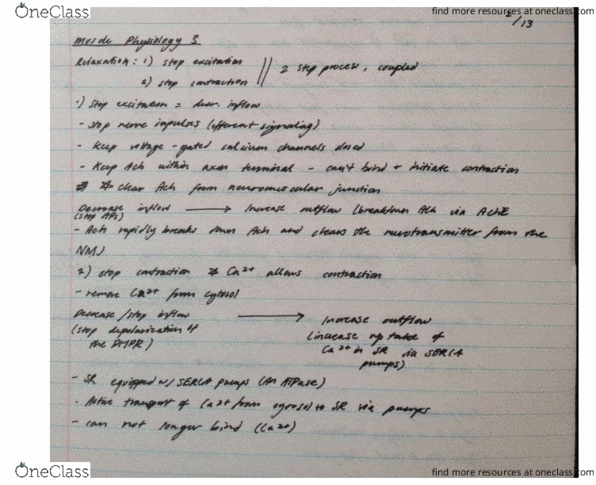 OneClass
find more resources at oneclass.com
2/13
Muscle Physiology 3
Relaxation: 1) stop excitation
2) stop contraction
2 step process, coupled
1) Stop excitation = decr. inflow
- Stop nerve impulses (efferent signaling)
- Keep voltage-gated calcium channels closed
- Keep Ach within axon terminal - can't bind + initiate contraction
clear Ach from neuromuscular junction
Decrease inflow → Increase outflow (breakdown Ach via AchE
(stop APs)
- AchE rapidly breaks down Ach and clears the neurotransmitter from the
NMJ
2) stop contraction * Ca2+ allows contraction
- remove Ca2+ from cytosol
Decrease/stop inflow → Increase outflow
(stop depolarization of (increase uptake of
the DHPR) Ca2+ in SR via SERCA
pumps)
- SR equipped w/ SERCA pumps (An ATPase)
- Active transport of Ca2+ from cytosol to SR via pumps
- can not longer bind (Ca2+)
OneClass
find more resources at oneclass.com